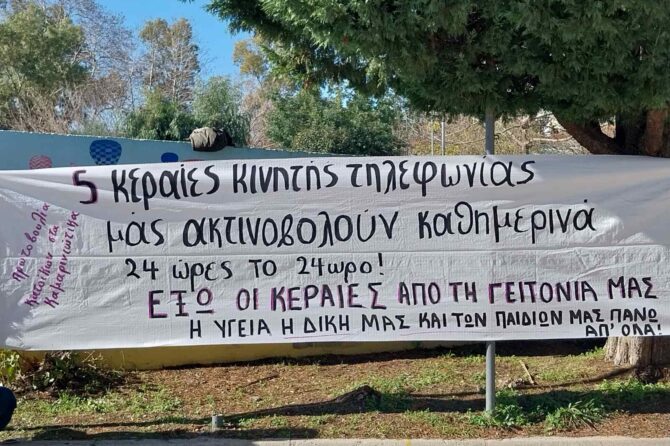 5 κεραίες κινητής τηλεφωνίας
μάς ακτινοβολούν καθημερινά
24 ώρες το 24ωρο!
ΕΞΩ ΟΙ ΚΕΡΑΙΕΣ ΑΠΟ ΤΗ ΓΕΙΤΟΝΙΑ ΜΑΣ
Η ΥΓΕΙΑ Η ΔΙΚΗ ΜΑΣ ΚΑΙ ΤΩΝ ΠΑΙΔΙΩΝ ΜΑΣ ΠΑΝΩ
ΑΠ' ΟΛΑ!
Πρωτοβουλία
Κατοίκων στα
Καμαρινιώτικα